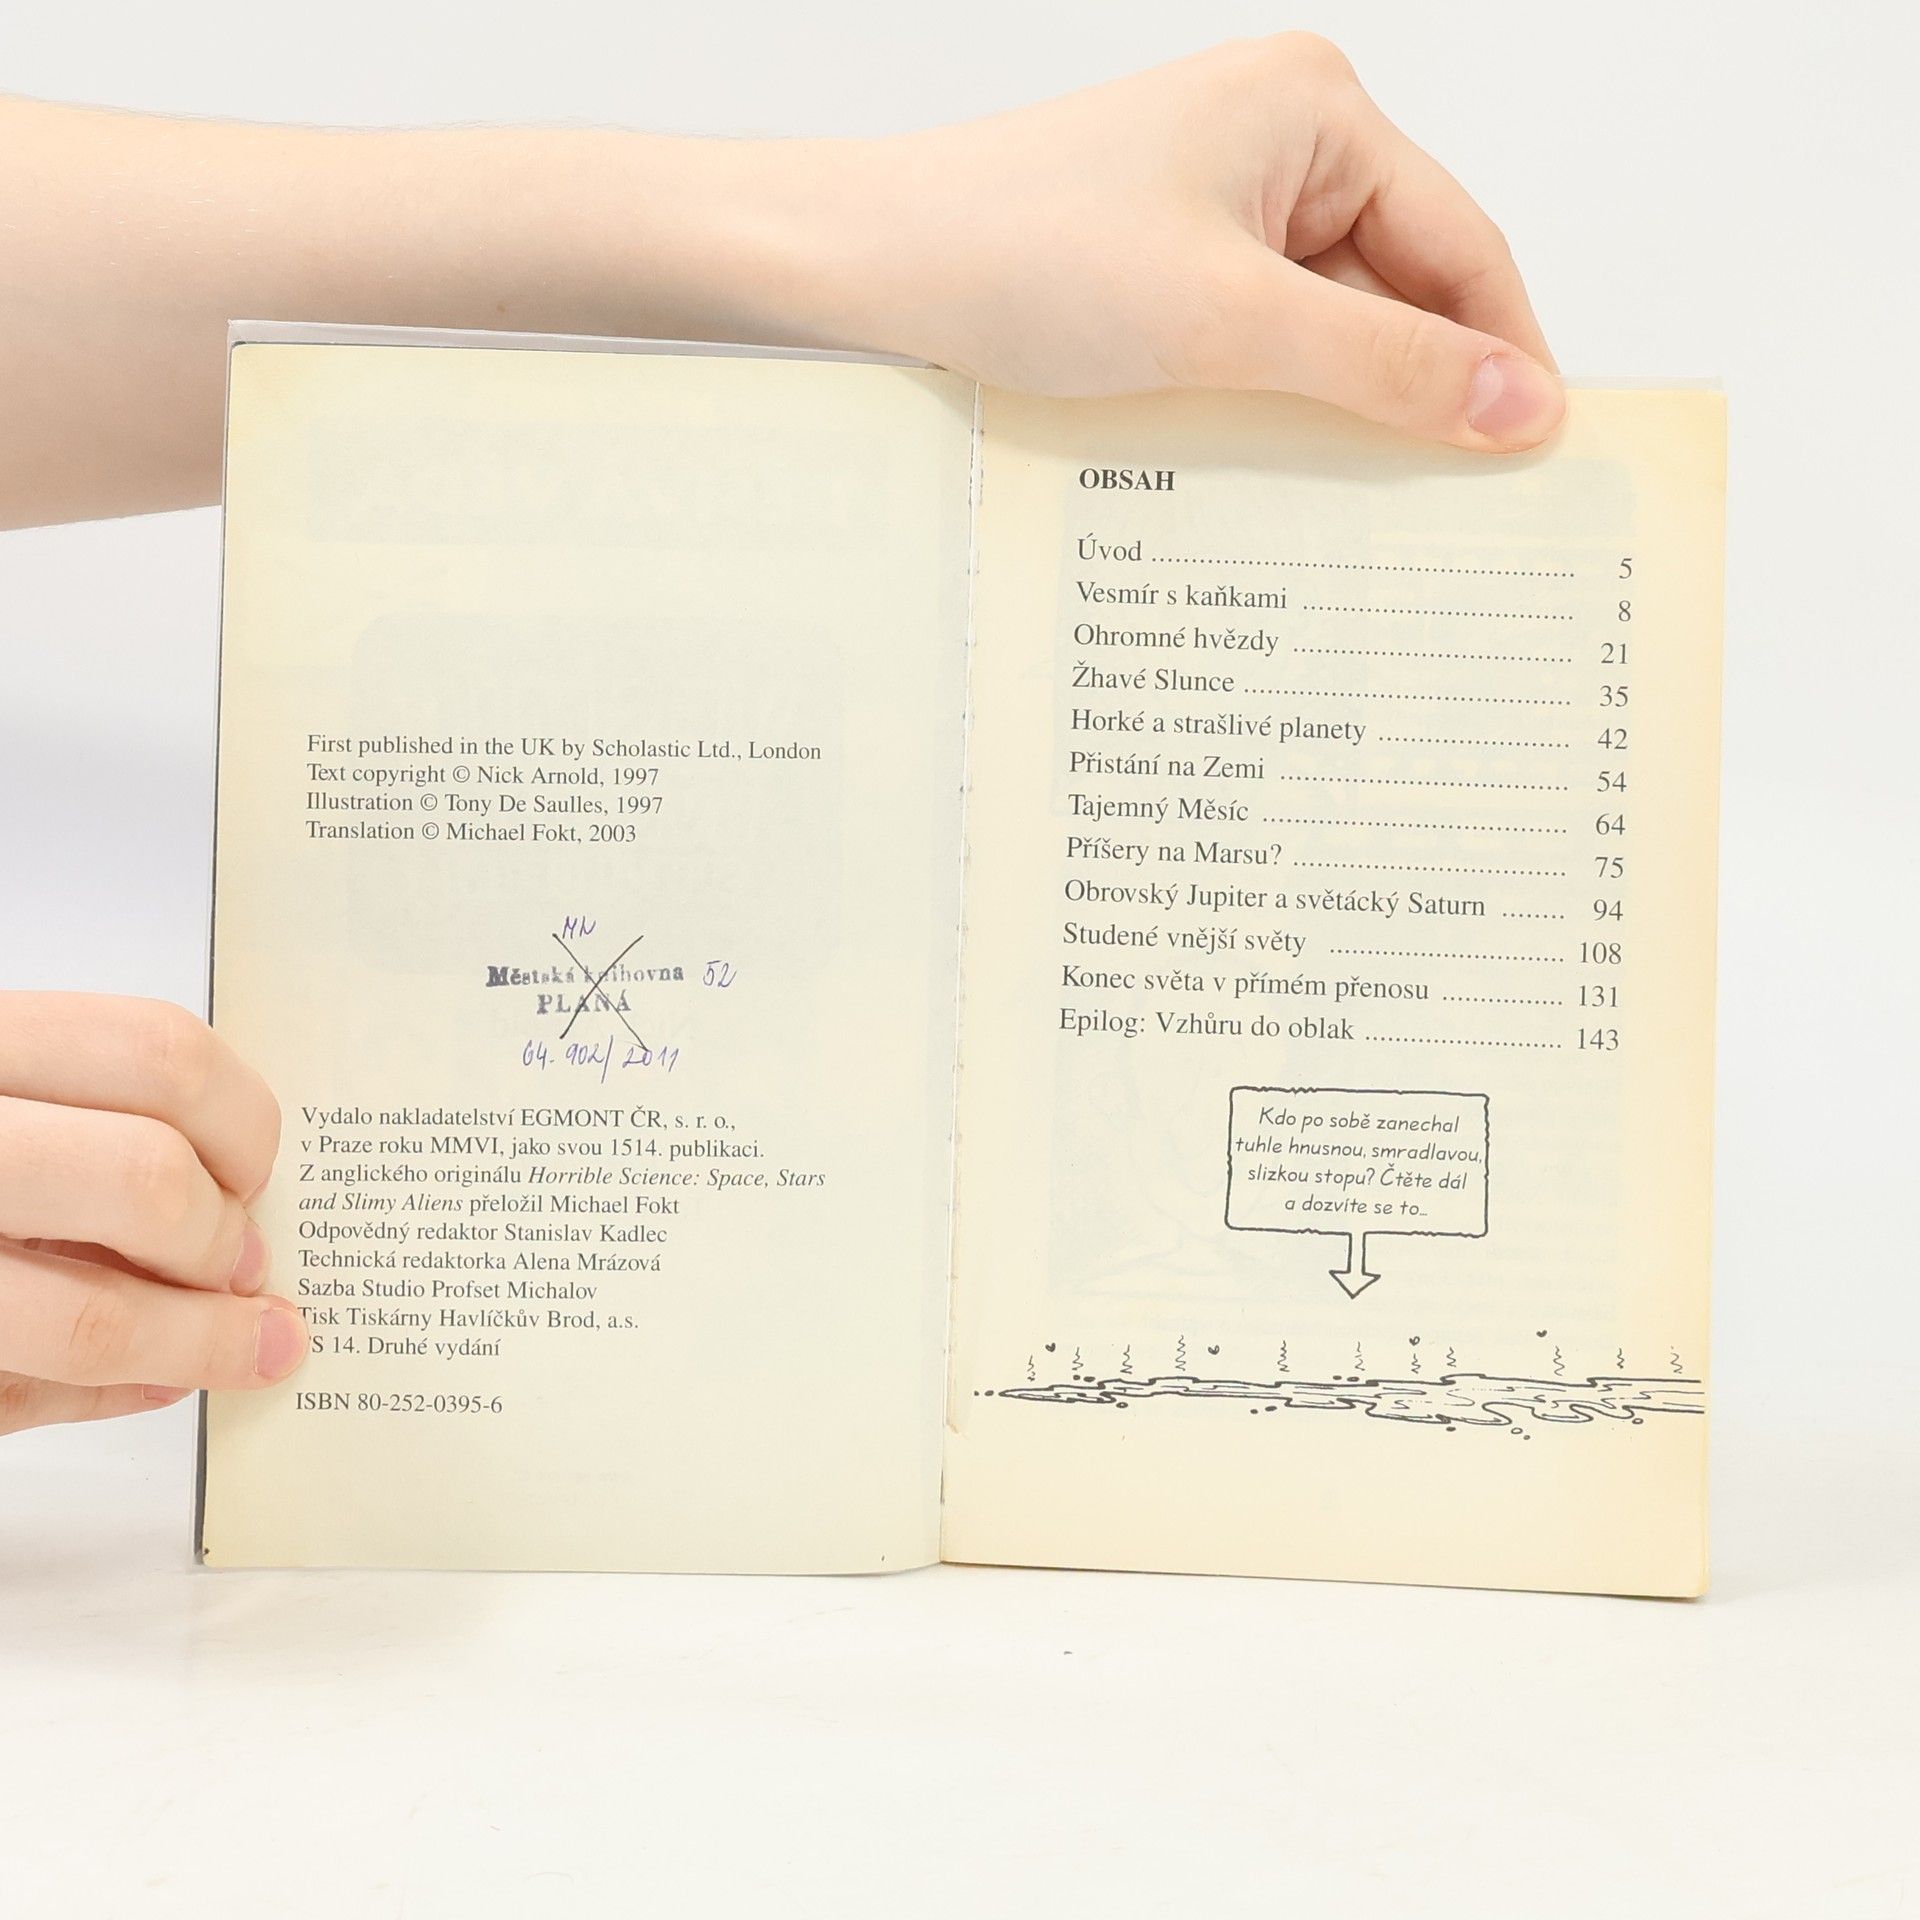 First published in the UK by Scholastic Ltd., London
Text copyright © Nick Arnold, 1997
Illustration © Tony De Saulles, 1997
Translation © Michael Fokt, 2003
MN
Městská knihovna 52
PLANÁ
64.902/2011
Vydalo nakladatelství EGMONT ČR, s. r. o.,
v Praze roku MMVI, jako svou 1514. publikaci.
Z anglického originálu Horrible Science: Space, Stars
and Slimy Aliens přeložil Michael Fokt
Odpovědný redaktor Stanislav Kadlec
Technická redaktorka Alena Mrázová
Sazba Studio Profset Michalov
Tisk Tiskárny Havlíčkův Brod, a.s.
14. Druhé vydání
ISBN 80-252-0395-6
OBSAH
Úvod ..................................................... 5
Vesmír s kaňkami .................................. 8
Ohromné hvězdy ................................... 21
Žhavé Slunce ......................................... 35
Horké a strašlivé planety ........................ 42
Přistání na Zemi .................................... 54
Tajemný Měsíc ...................................... 64
Příšery na Marsu? .................................. 75
Obrovský Jupiter a světácký Saturn ........ 94
Studené vnější světy .............................. 108
Konec světa v přímém přenosu ............... 131
Epilog: Vzhůru do oblak ......................... 143
Kdo po sobě zanechal
tuhle hnusnou, smradlavou,
slizkou stopu? Čtěte dál
a dozvíte se to...